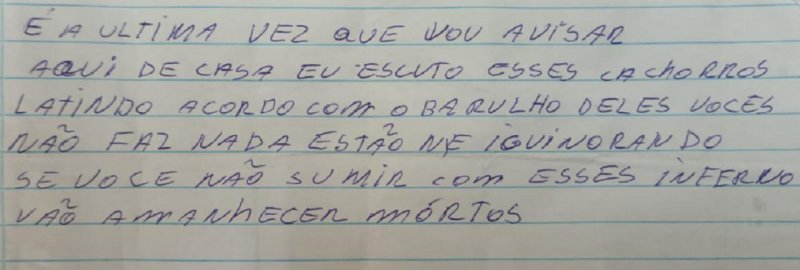 É A ULTIMA VEZ QUE VOU AVISAR
AQUI DE CASA EU ESCUTO ESSES CACHORROS
LATINDO ACORDO COM O BARULHO DELES VOCES
NÃO FAZ NADA ESTÃO ME IGUINORANDO
SE VOCE NÃO SUMIR COM ESSES INFERNO
VÃO AMANHECER MÓRTOS